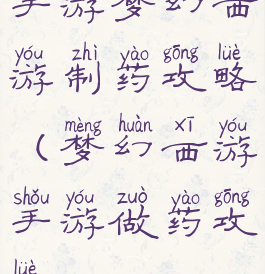 手游梦幻西
yóu zhì yào gōng lüè
游制药攻略
mèng huàn xī yóu
（梦幻西游
shǒu yóu zuò yào gōng
手游做药攻
lüè